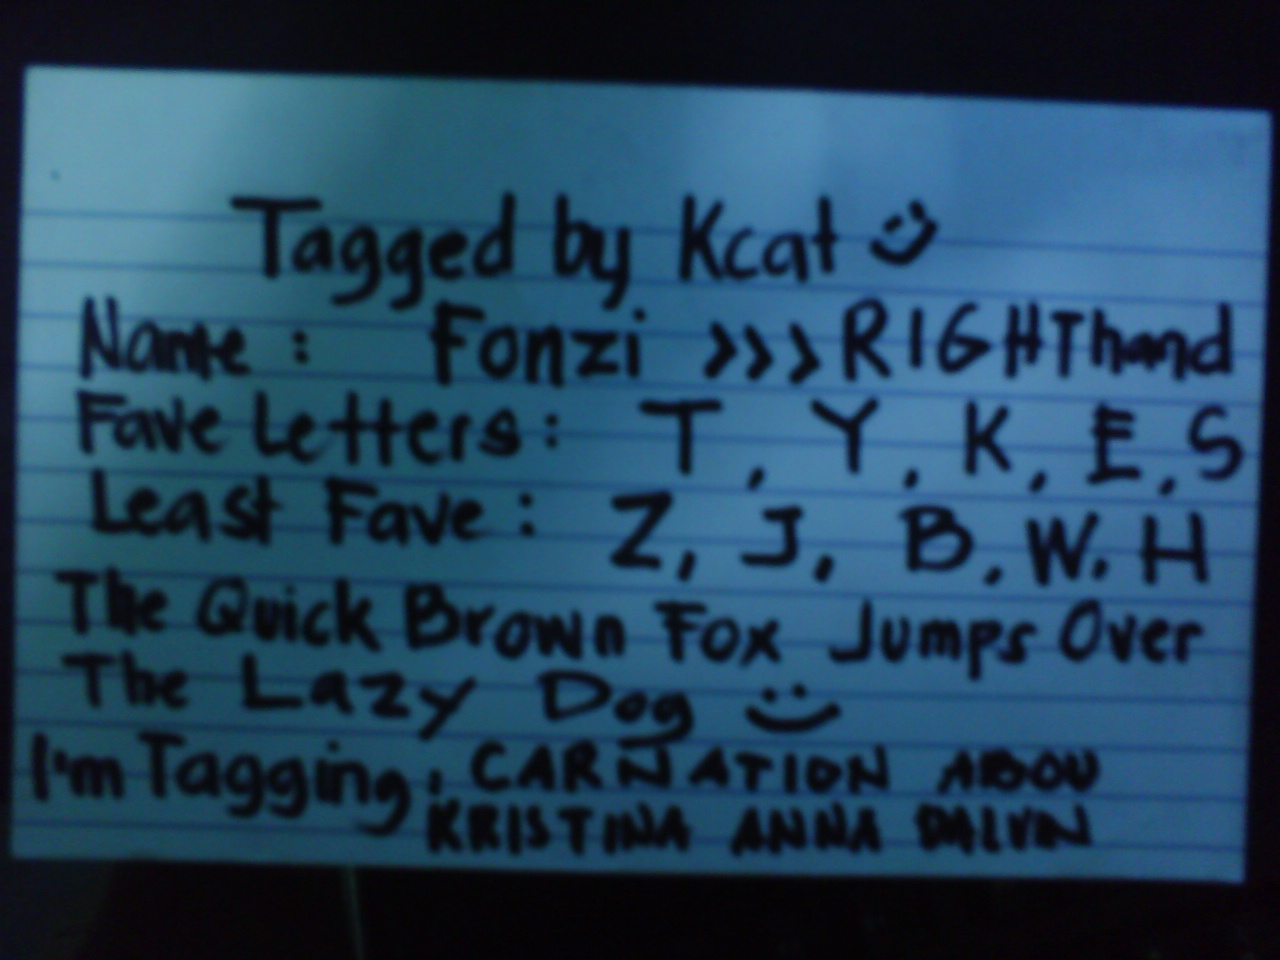 Tagged by Kcat
Name : Fonzi >>> RIGHThand
Fave Letters : T, Y, K, E, S
Least Fave : Z, J, B, W, H
The Quick Brown Fox Jumps Over
The Lazy Dog
I'm Tagging: CARNATION ABOU
KRISTINA ANNA DALVIN